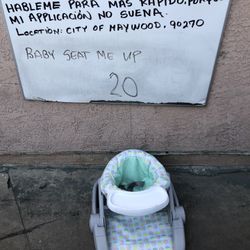 HABLEME PARA MAS RAPIDO, PORQUE
MI APPLICACIÓN NO SUENA.
LOCATION: CITY OF MAYWOOD, 90270
BABY SEAT ME UP
20